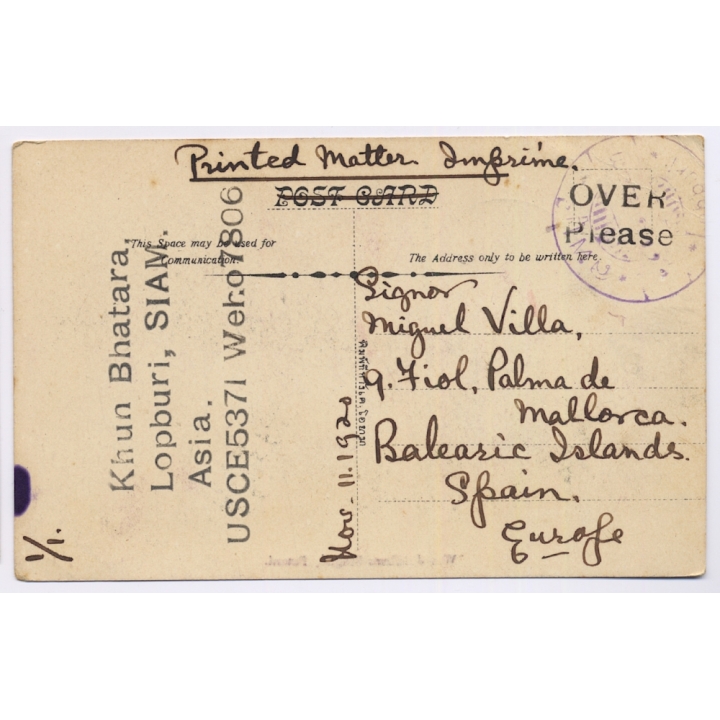 Printed Matter. Imprimé.
POST CARD
OVER
Please
This Space may be used for
Communication.
The Address only to be written here.
Khun Bhatara,
Lopburi, SIAM.
Asia.
USCE5371 Weho7806
Signor
Miguel Villa,
9. Fiol, Palma de
Mallorca.
Balearic Islands.
Spain.
Europe
Nov. 11. 1920
1/1.